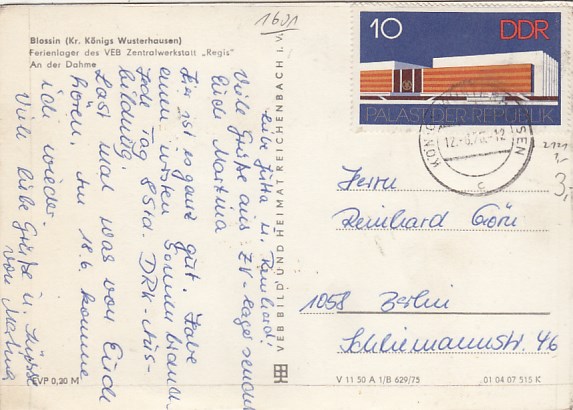 1601
Blossin (Kr. Königs Wusterhausen)
Ferienlager des VEB Zentralwerkstatt „Regis"
An der Dahme
Liebe Jutta u. Reinhard!
Viele Grüße aus ZV-Lager
Euch Martina
Hier ist es ganz gut. Habe
einen Sonnenbrand
Jede Tag 8 Std. DRK-Aus-
bildung.
Laßt mal was von Euch
hören. Am 18.6. komme
ich wieder.
Viele liebe Grüße u. Küsse
von Martina
EVP 0,20 M
VEB BILD UND HEIMAT REICHENBACH I. V.
10 DDR
PALAST DER REPUBLIK
12
C
3,-
Herrn
Reinhard Görn
1058 Berlin
Schliemannstr. 46
V 11 50 A 1/B 629/75
01 04 07 515 K